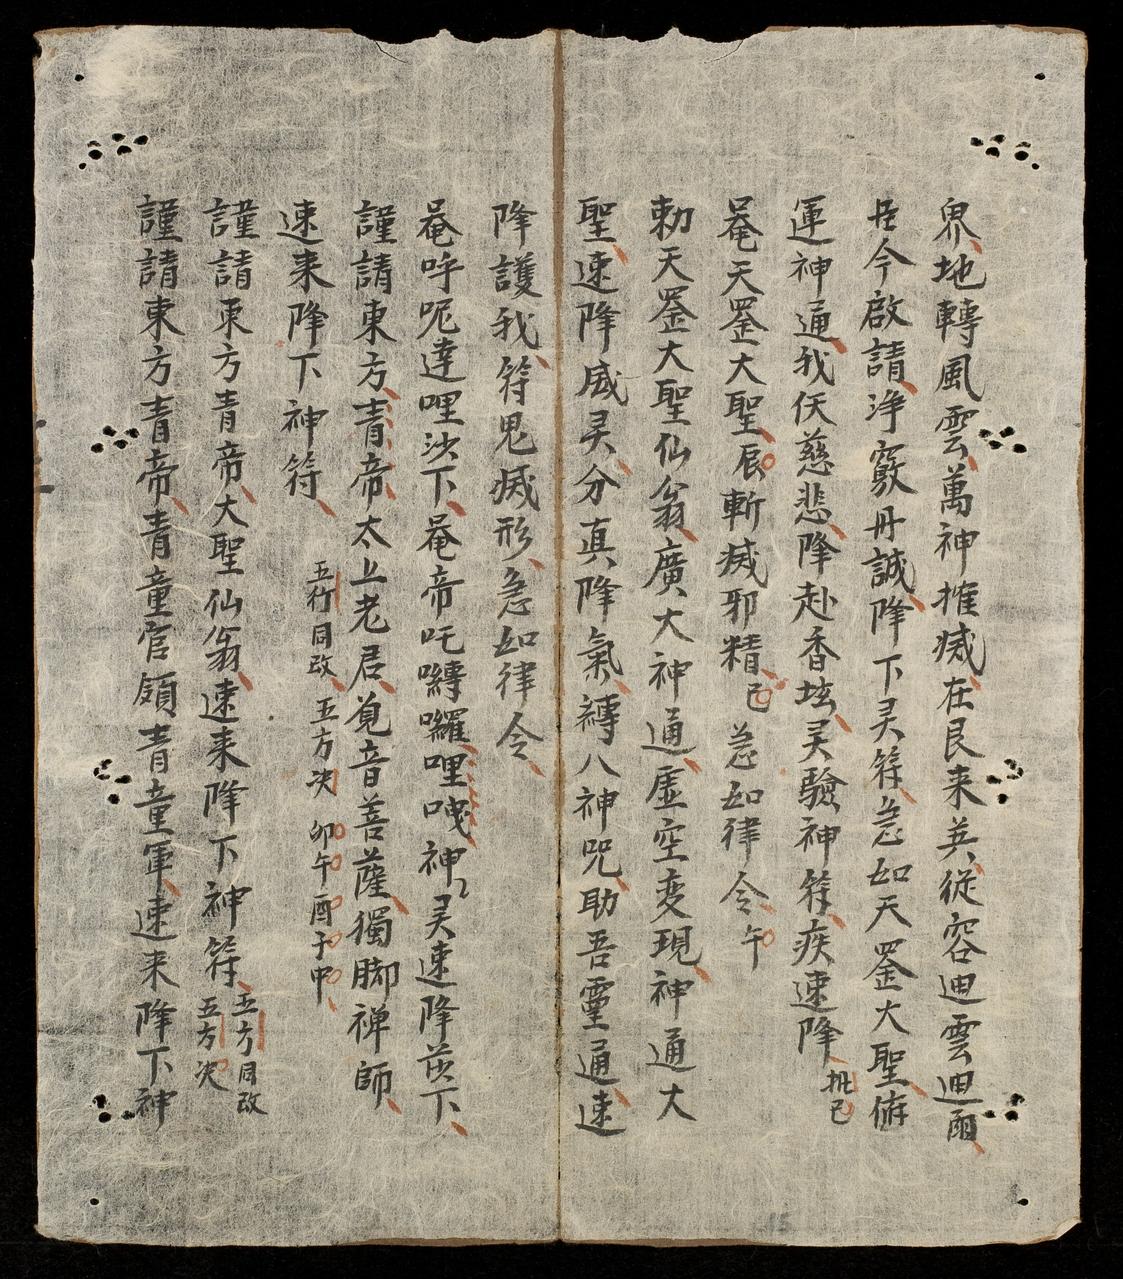 界地轉風雲萬神摧滅在艮来英從容迪雲迪雨
臣今啟請浄竅丹誠降下灵符急如天罡大聖俯
運神通我仸慈悲降赴香坛灵驗神符疾速降 批巳
唵天罡大聖辰斬滅邪精巳急如律令午
勅天罡大聖仙翁廣大神通虛空变現神通大
聖速降威灵分真降氣禣八神咒助吾靈通速
降護我符鬼滅形急如律令
唵呼呢達哩沙下唵帝吒囀囉哩神灵速降下
謹請東方青帝太上老君覌音菩薩獨脚禅師
速来降下神符 五行同改 五方决 卯午酉子中
謹請東方青帝大聖仙翁速来降下神符 五方同改 五方决
謹請東方青帝青童官領青童軍速来降下神
15